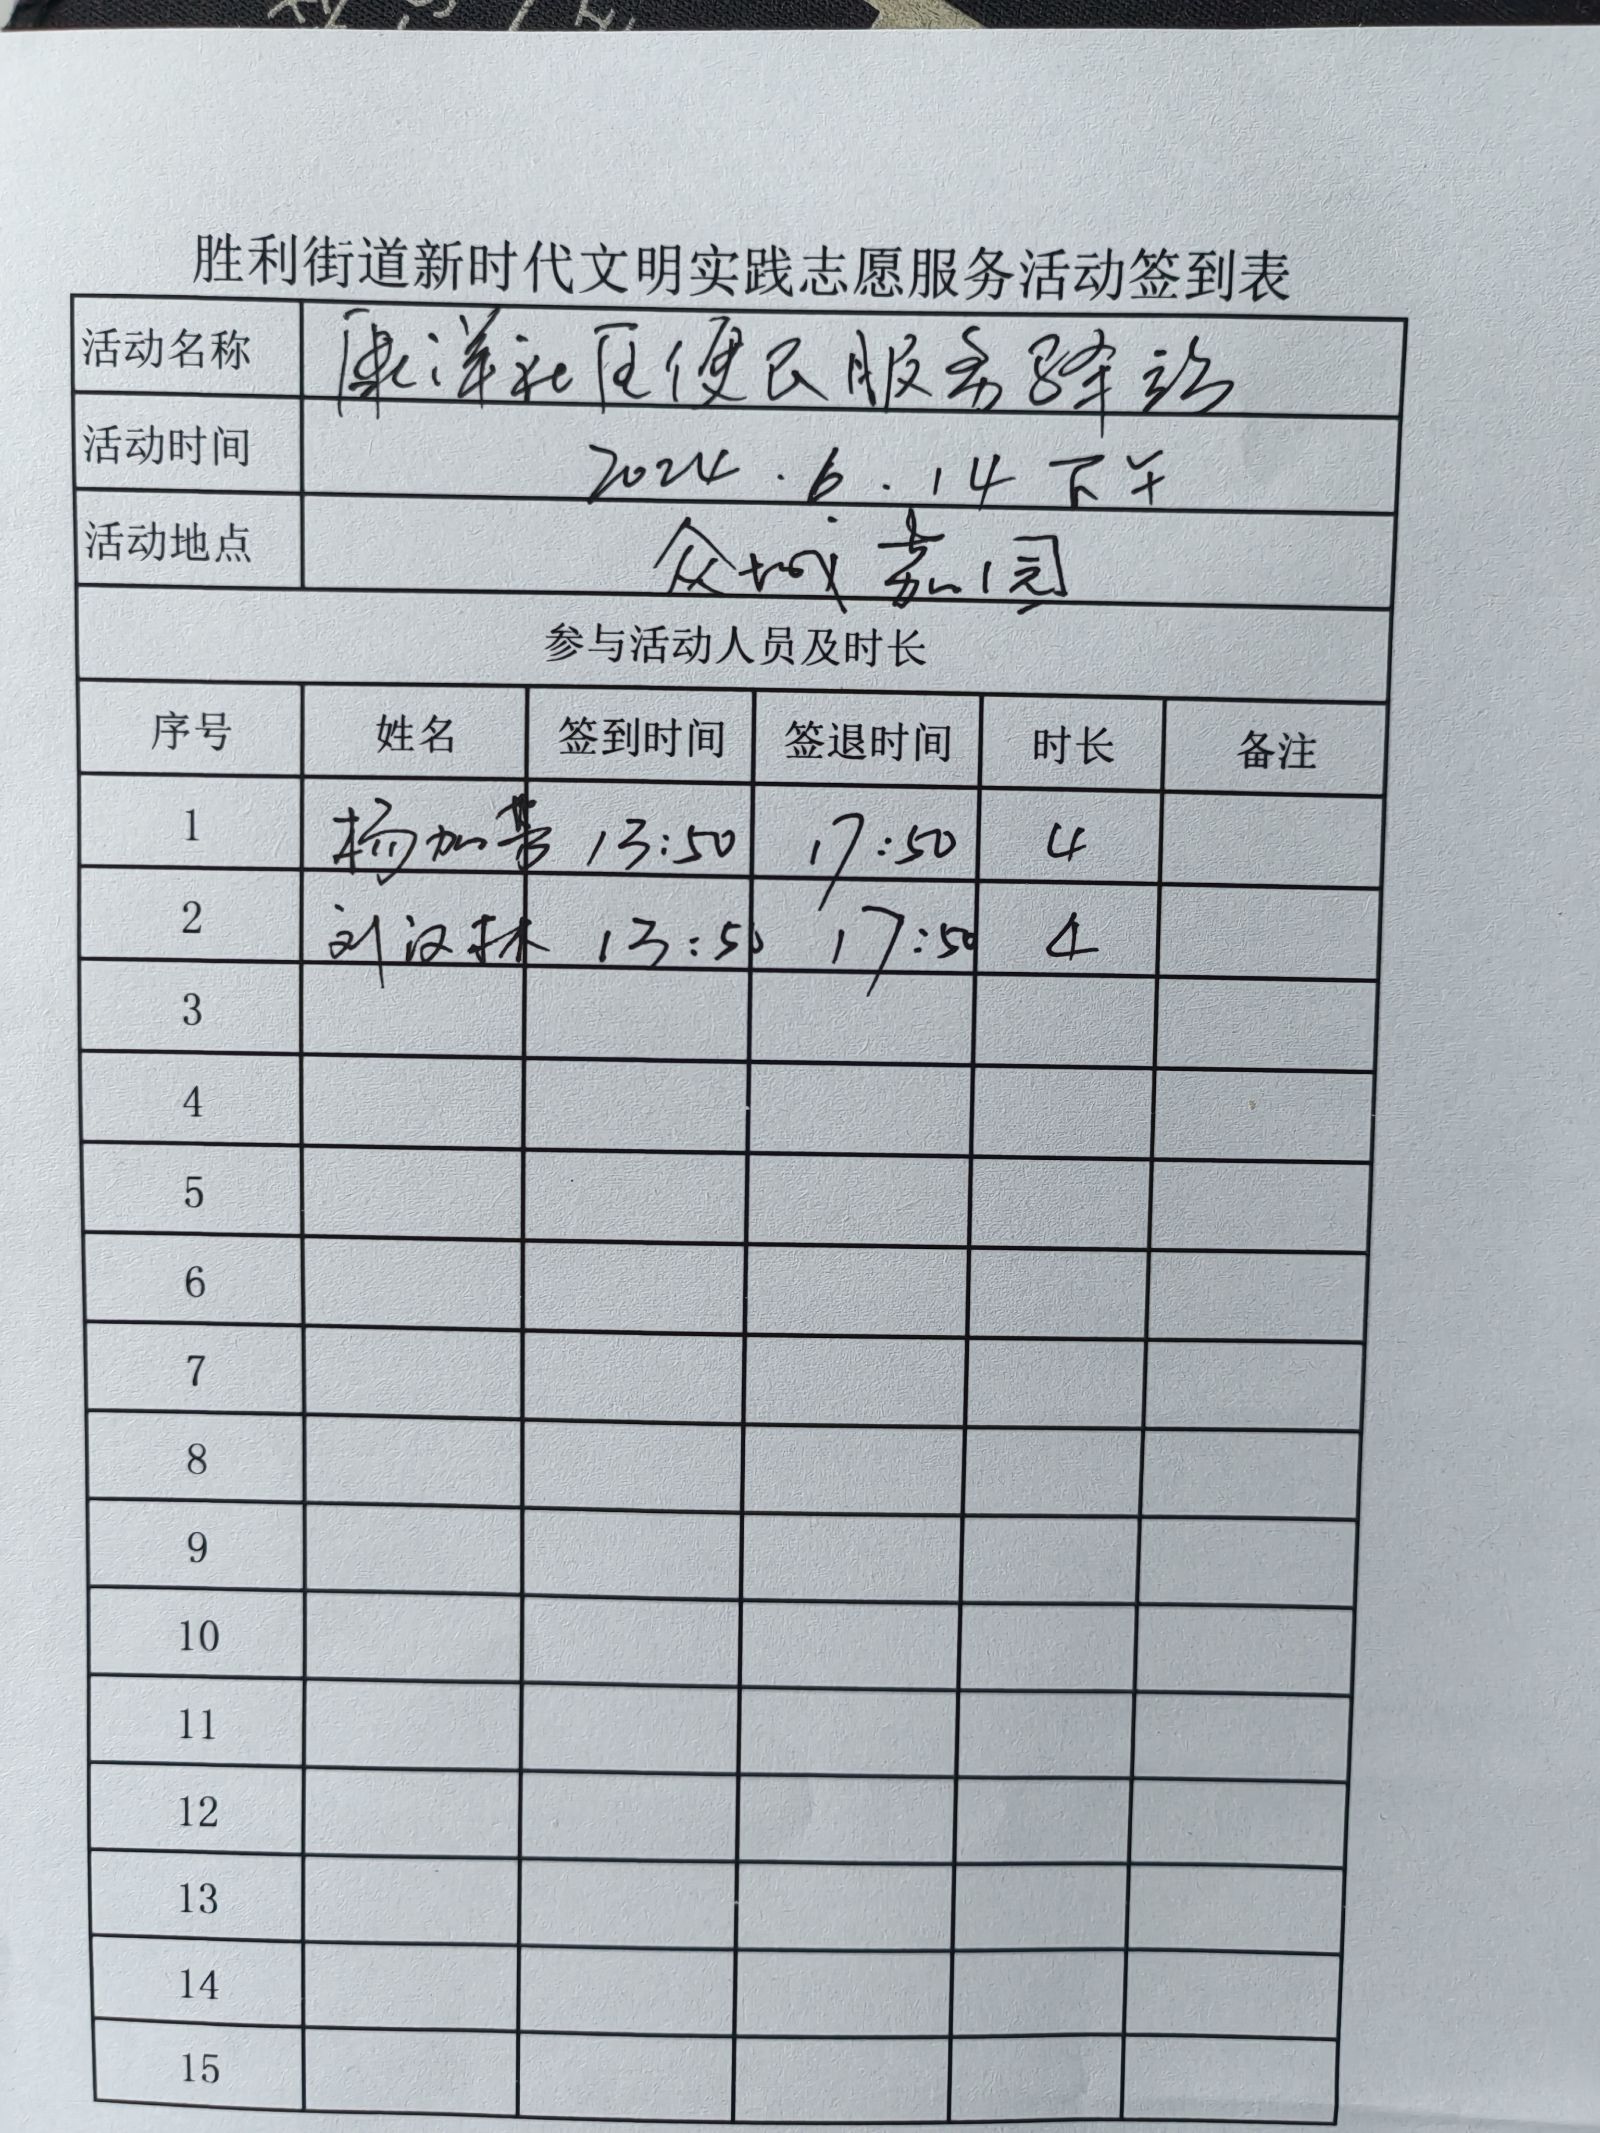 胜利街道新时代文明实践志愿服务活动签到表
活动名称 康洋社区便民服务驿站
活动时间 2024.6.14下午
活动地点 众城嘉园
参与活动人员及时长
序号 姓名 签到时间 签退时间 时长 备注
1 杨加 13:50 17:50 4
2 刘汉林 13:50 17:50 4
3
4
5
6
7
8
9
10
11
12
13
14
15